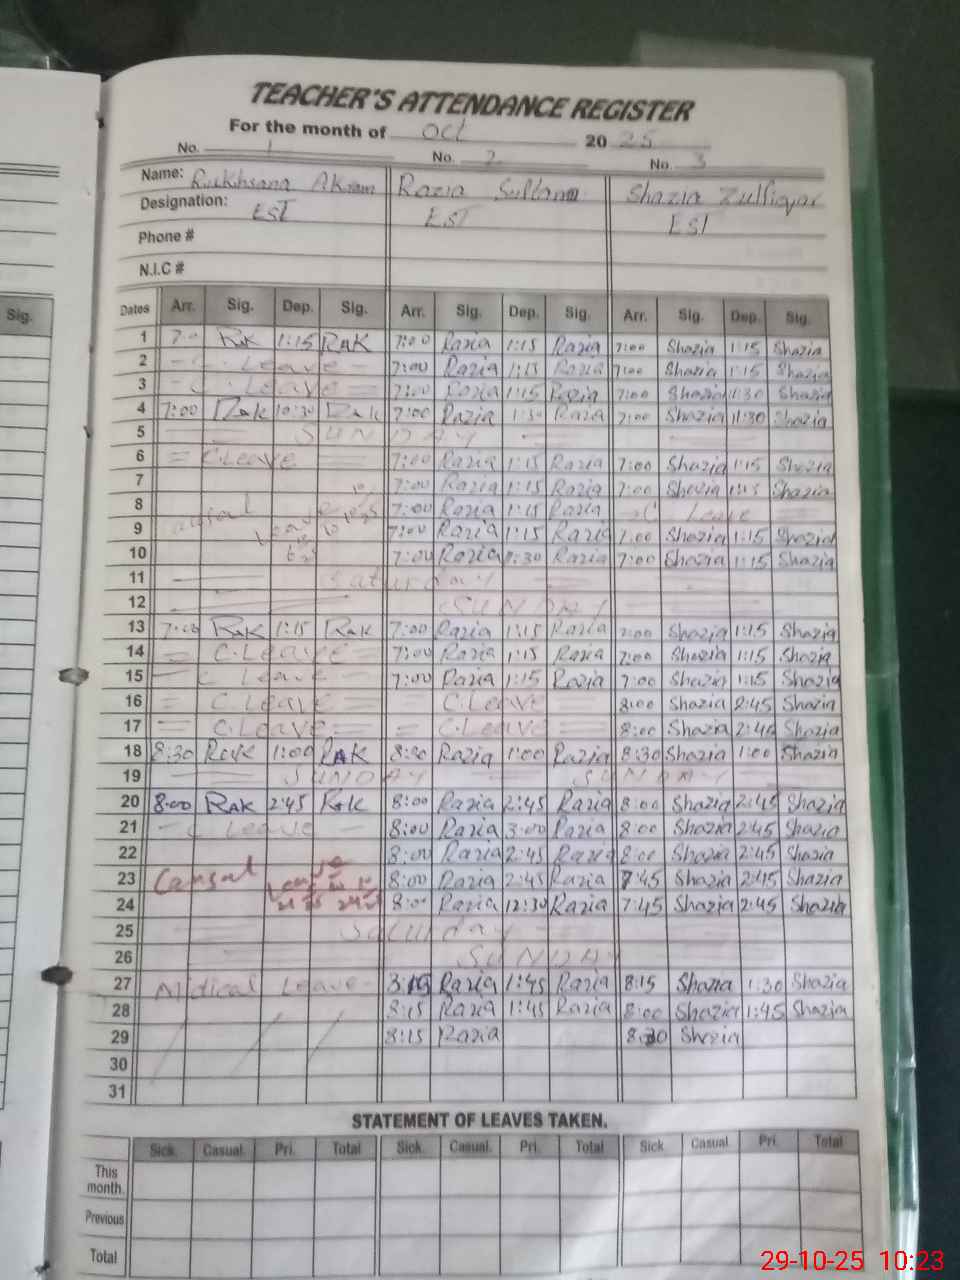 TEACHER'S ATTENDANCE REGISTER
For the month of Oct 2025
No. 1 No. 2 No. 3
Name: Rukhsana Akram Razia Sultana Shazia Zulfiqar
Designation: EST EST EST
Phone #
N.I.C #
Sig.
Dates Arr. Sig. Dep. Sig. Arr. Sig. Dep. Sig. Arr. Sig. Dep. Sig.
1 RAK 1:15 RAK 7:00 Razia 1:15 Razia 7:00 Shazia 1:15 Shazia
2 C. Leave 7:00 Razia 1:15 Razia 7:00 Shazia 1:15 Shazia
3 C. Leave 7:00 Razia 1:15 Razia 7:00 Shazia 11:30 Shazia
4 7:00 RAK 10:30 RAK 7:00 Razia Razia 7:00 Shazia 11:30 Shazia
5 SUNDAY
6 C. Leave 7:00 Razia 1:15 Razia 7:00 Shazia 1:15 Shazia
7 7:00 Razia 1:15 Razia 7:00 Shazia 1:15 Shazia
8 Leave 7:00 Razia 1:15 Razia C Leave
9 7:00 Razia 1:15 Razia 7:00 Shazia 1:15 Shazia
10 7:00 Razia Razia 7:00 Shazia 1:15 Shazia
11 Saturday
12 SUNDAY
13 7:00 RAK 1:15 RAK 7:00 Razia 1:15 Razia 7:00 Shazia 1:15 Shazia
14 C. Leave 7:00 Razia 1:15 Razia 7:00 Shazia 1:15 Shazia
15 C Leave 7:00 Razia 1:15 Razia 7:00 Shazia 1:15 Shazia
16 C. Leave C. Leave 8:00 Shazia 2:45 Shazia
17 C. Leave C. Leave 8:00 Shazia 2:45 Shazia
18 8:30 RAK 1:00 RAK Razia 1:00 Razia 8:30 Shazia 1:00 Shazia
19 SUNDAY SUNDAY
20 8:00 RAK 2:45 RAK 8:00 Razia 2:45 Razia 8:00 Shazia 2:45 Shazia
21 C Leave 8:00 Razia 3:00 Razia 8:00 Shazia 2:45 Shazia
22 8:00 Razia 2:45 Razia 8:00 Shazia 2:45 Shazia
23 Causal Leave 8:00 Razia 2:45 Razia 7:45 Shazia 2:45 Shazia
24 8:00 Razia 12:30 Razia 7:45 Shazia 2:45 Shazia
25 Saturday
26 SUNDAY
27 Midical Leave Razia 1:45 Razia 8:15 Shazia 1:30 Shazia
28 8:15 Razia 1:45 Razia 8:00 Shazia 1:45 Shazia
29 8:15 Razia 8:30 Shazia
30
31
STATEMENT OF LEAVES TAKEN.
Sick. Casual. Pri. Total Sick. Casual. Pri. Total Sick Casual. Pri. Total
This month.
Previous
Total
29-10-25 10:23